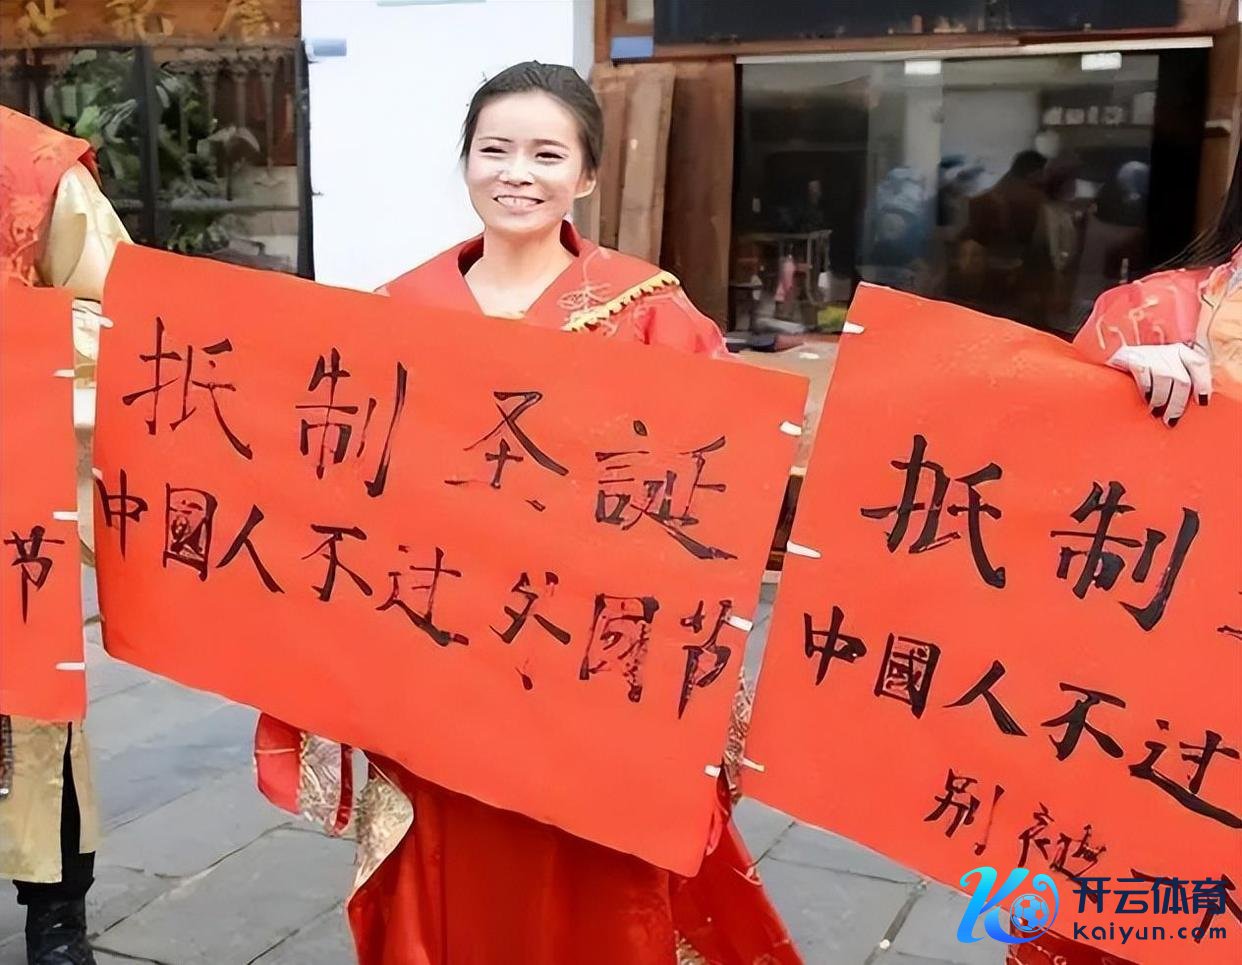 节
抵制圣誕
中國人不过外國节
抵制
中國人不过
别
开云体育
kaiyun.com